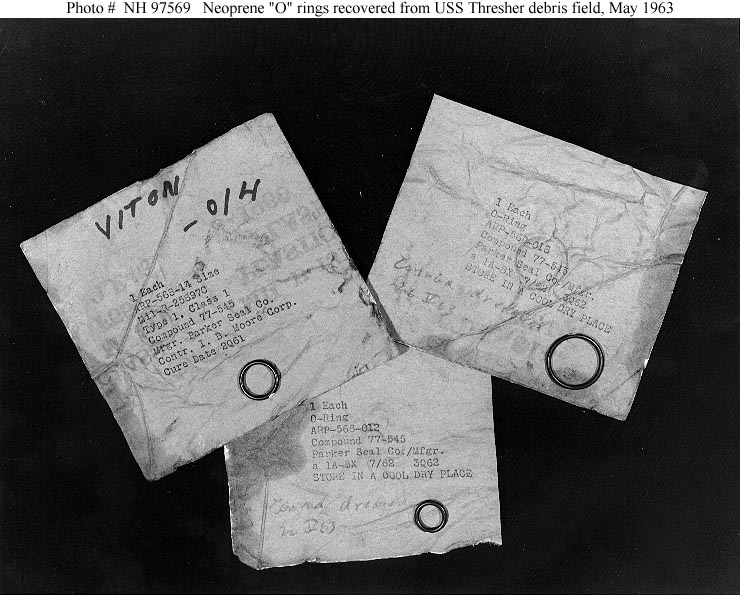 Photo # NH 97569 Neoprene "O" rings recovered from USS Thresher debris field, May 1963
VITON
-014
1 Each
ARP-568-14 Size
Mil-R-25897C
Type 1, Class 1
Compound 77-545
Mfgr. Parker Seal Co.
Contr. I. B. Moore Corp.
Cure Date 2Q61
1 Each
O-Ring
ARP-568-018
Compound 77-545
Parker Seal Co./Mfgr.
a 1A-8X 7/62 3Q62
STORE IN A COOL DRY PLACE
1 Each
O-Ring
ARP-568-012
Compound 77-545
Parker Seal Co./Mfgr.
a 1A-8X 7/62 3Q62
STORE IN A COOL DRY PLACE